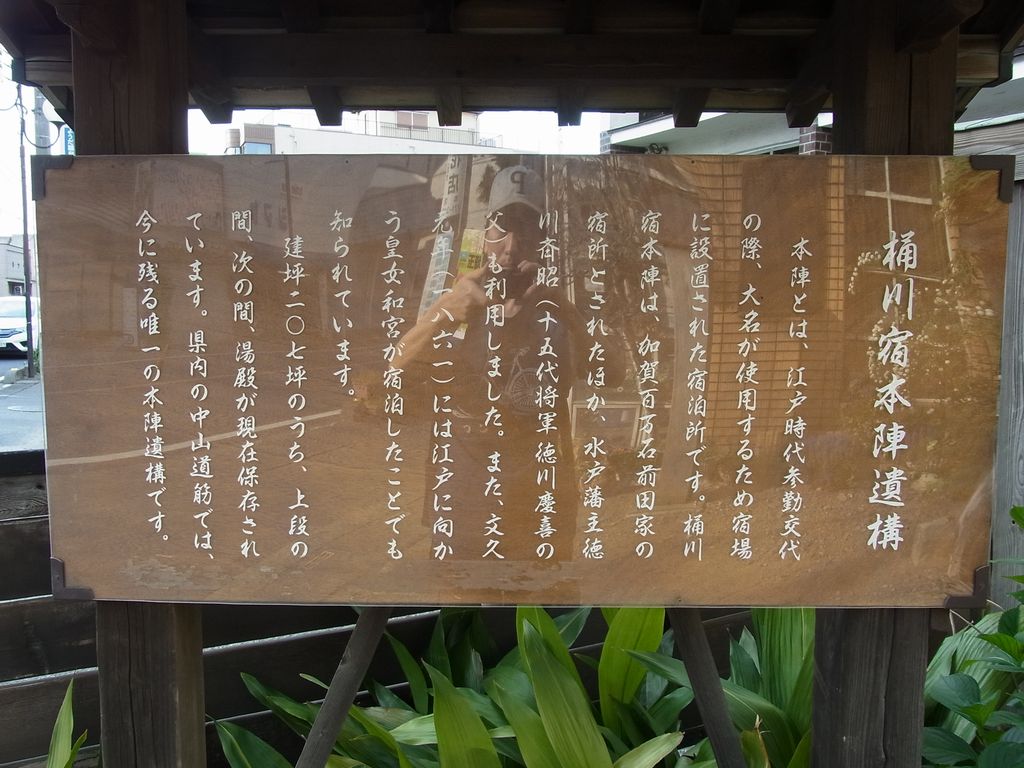 桶川宿本陣遺構
本陣とは、江戸時代参勤交代
の際、大名が使用するため宿場
に設置された宿泊所です。桶川
宿本陣は、加賀百万石前田家の
宿所とされたほか、水戸藩主徳
川斉昭(十五代将軍徳川慶喜の
父)も利用しました。また、文久
元年(一八六一)には江戸に向か
う皇女和宮が宿泊したことでも
知られています。
建坪二〇七坪のうち、上段の
間、次の間、湯殿が現在保存され
ています。県内の中山道筋では、
今に残る唯一の本陣遺構です。
P